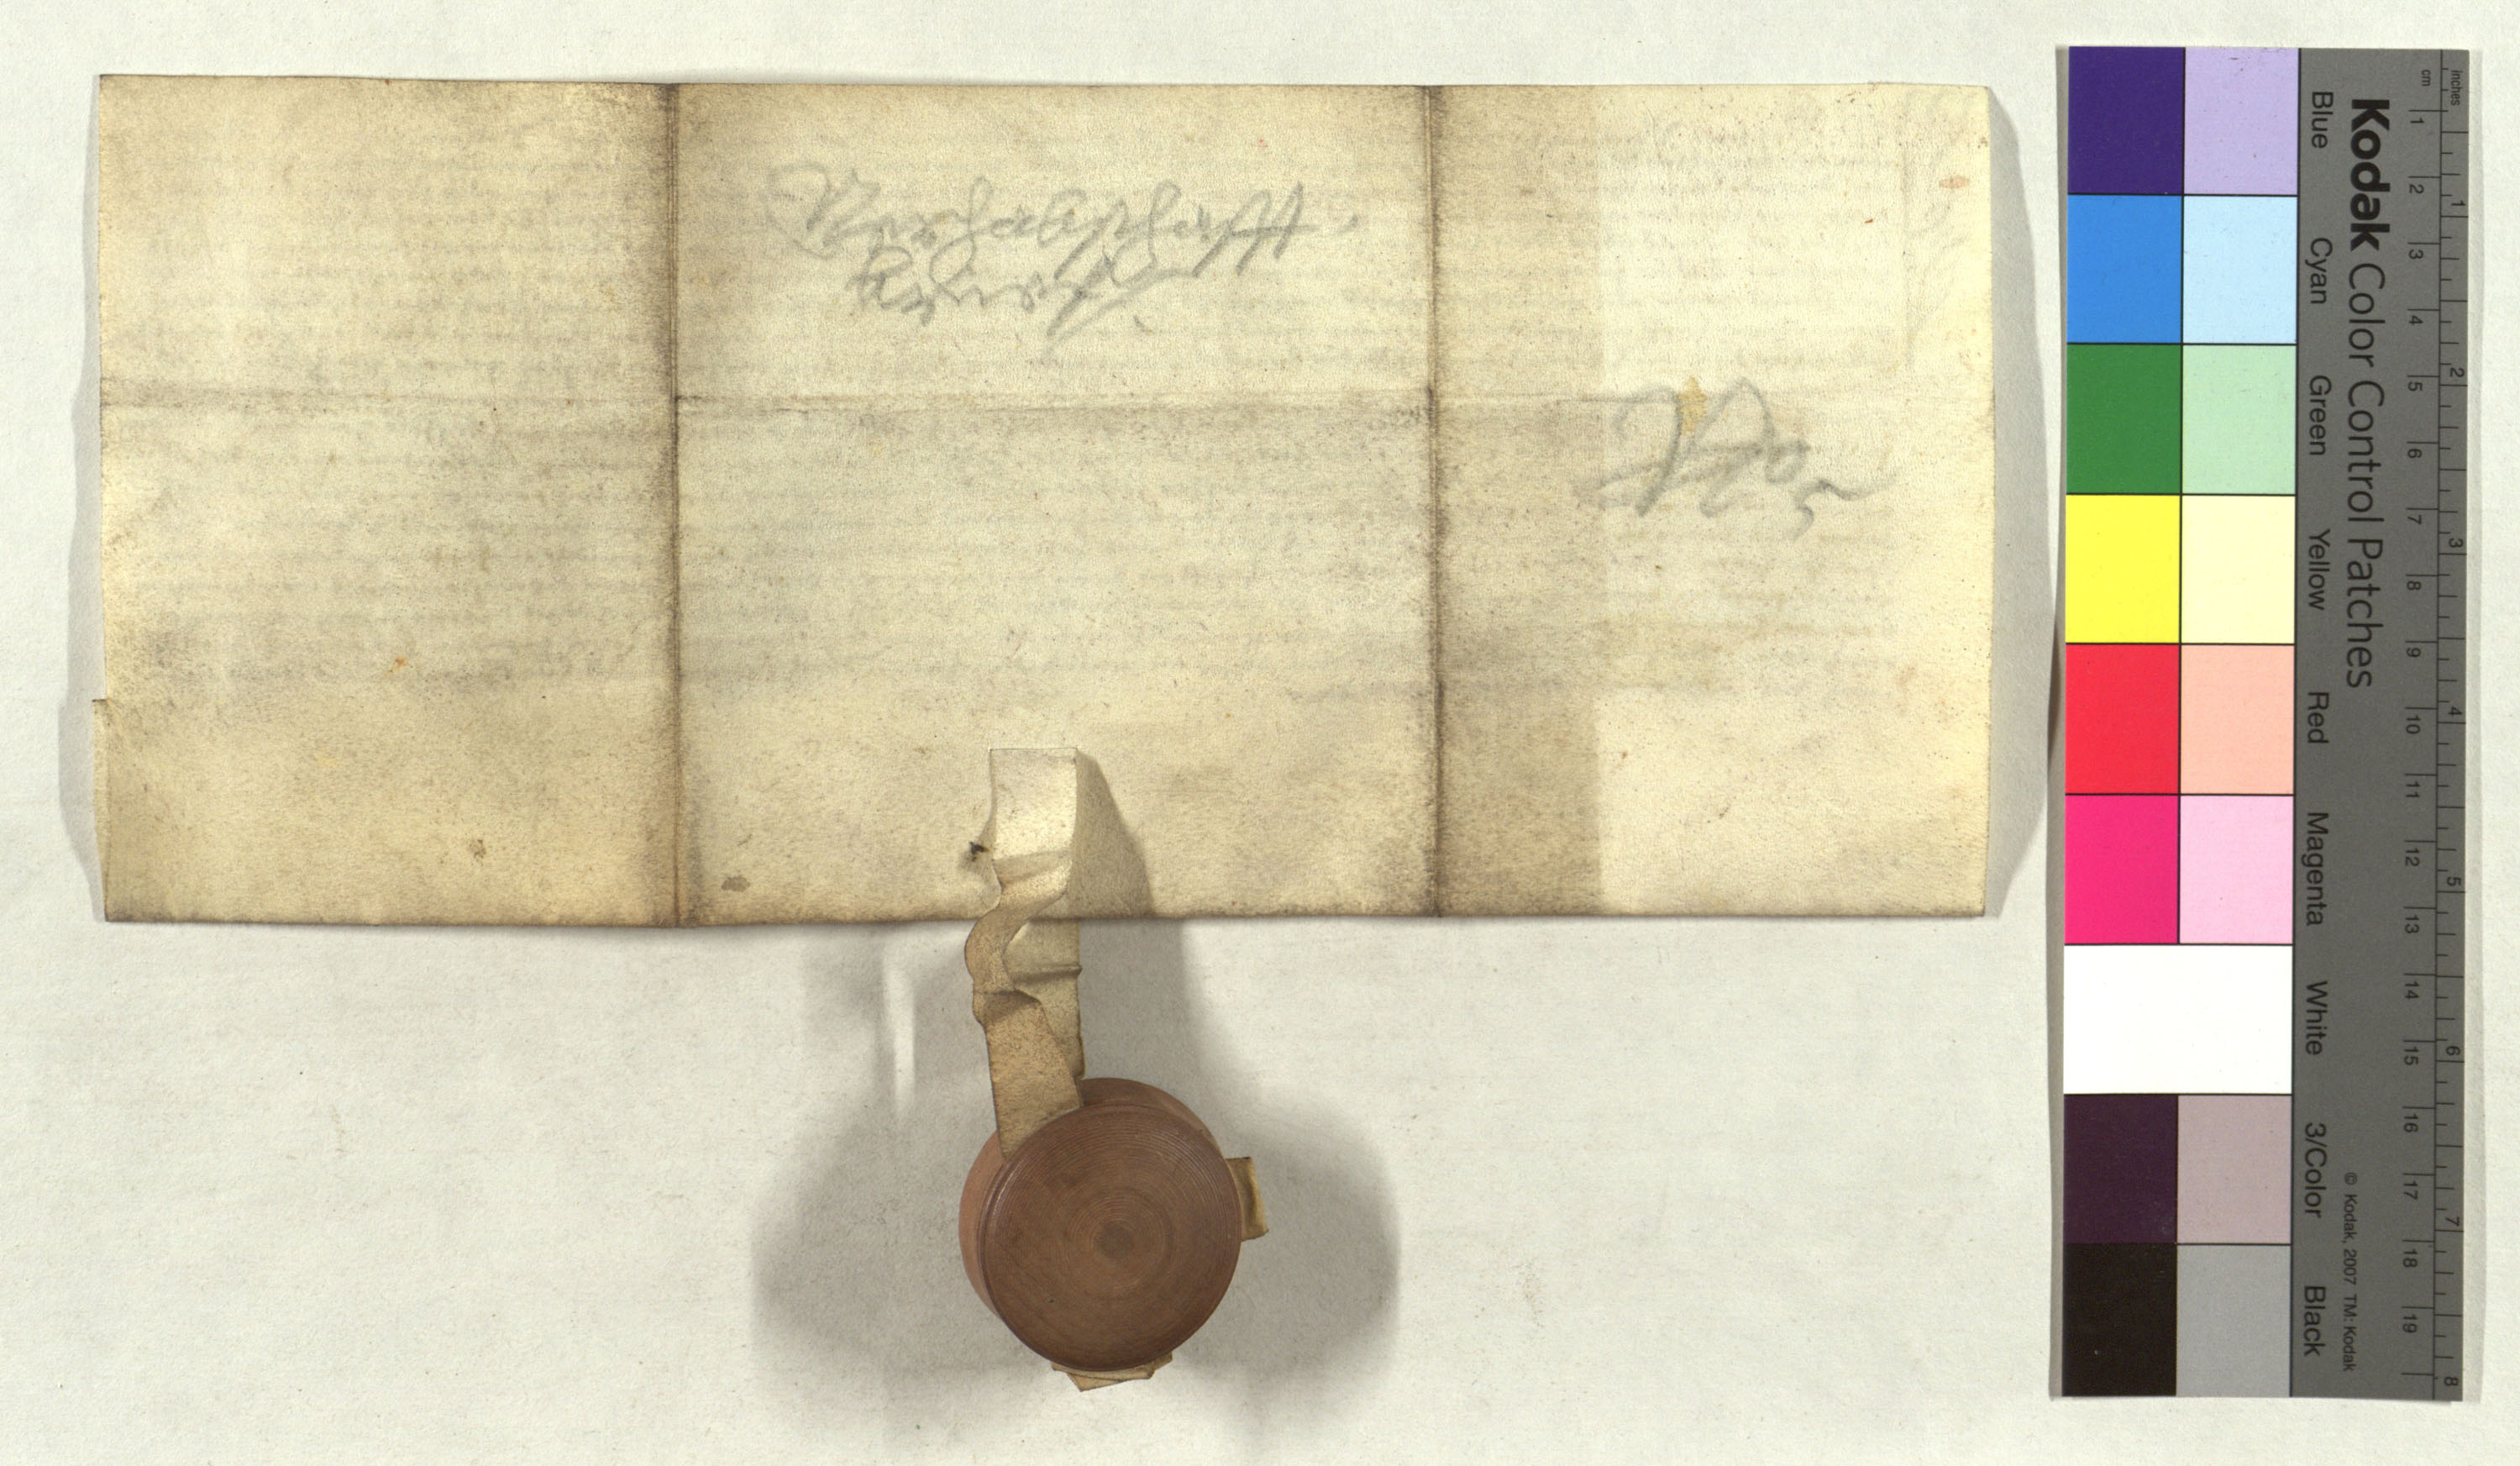 Verhabschafft,
Reuers.
No 5
Kodak Color Control Patches
Blue Cyan Green Yellow Red Magenta White 3/Color Black
© Kodak, 2007 TM: Kodak
inches 1 2 3 4 5 6 7 8
cm 1 2 3 4 5 6 7 8 9 10 11 12 13 14 15 16 17 18 19